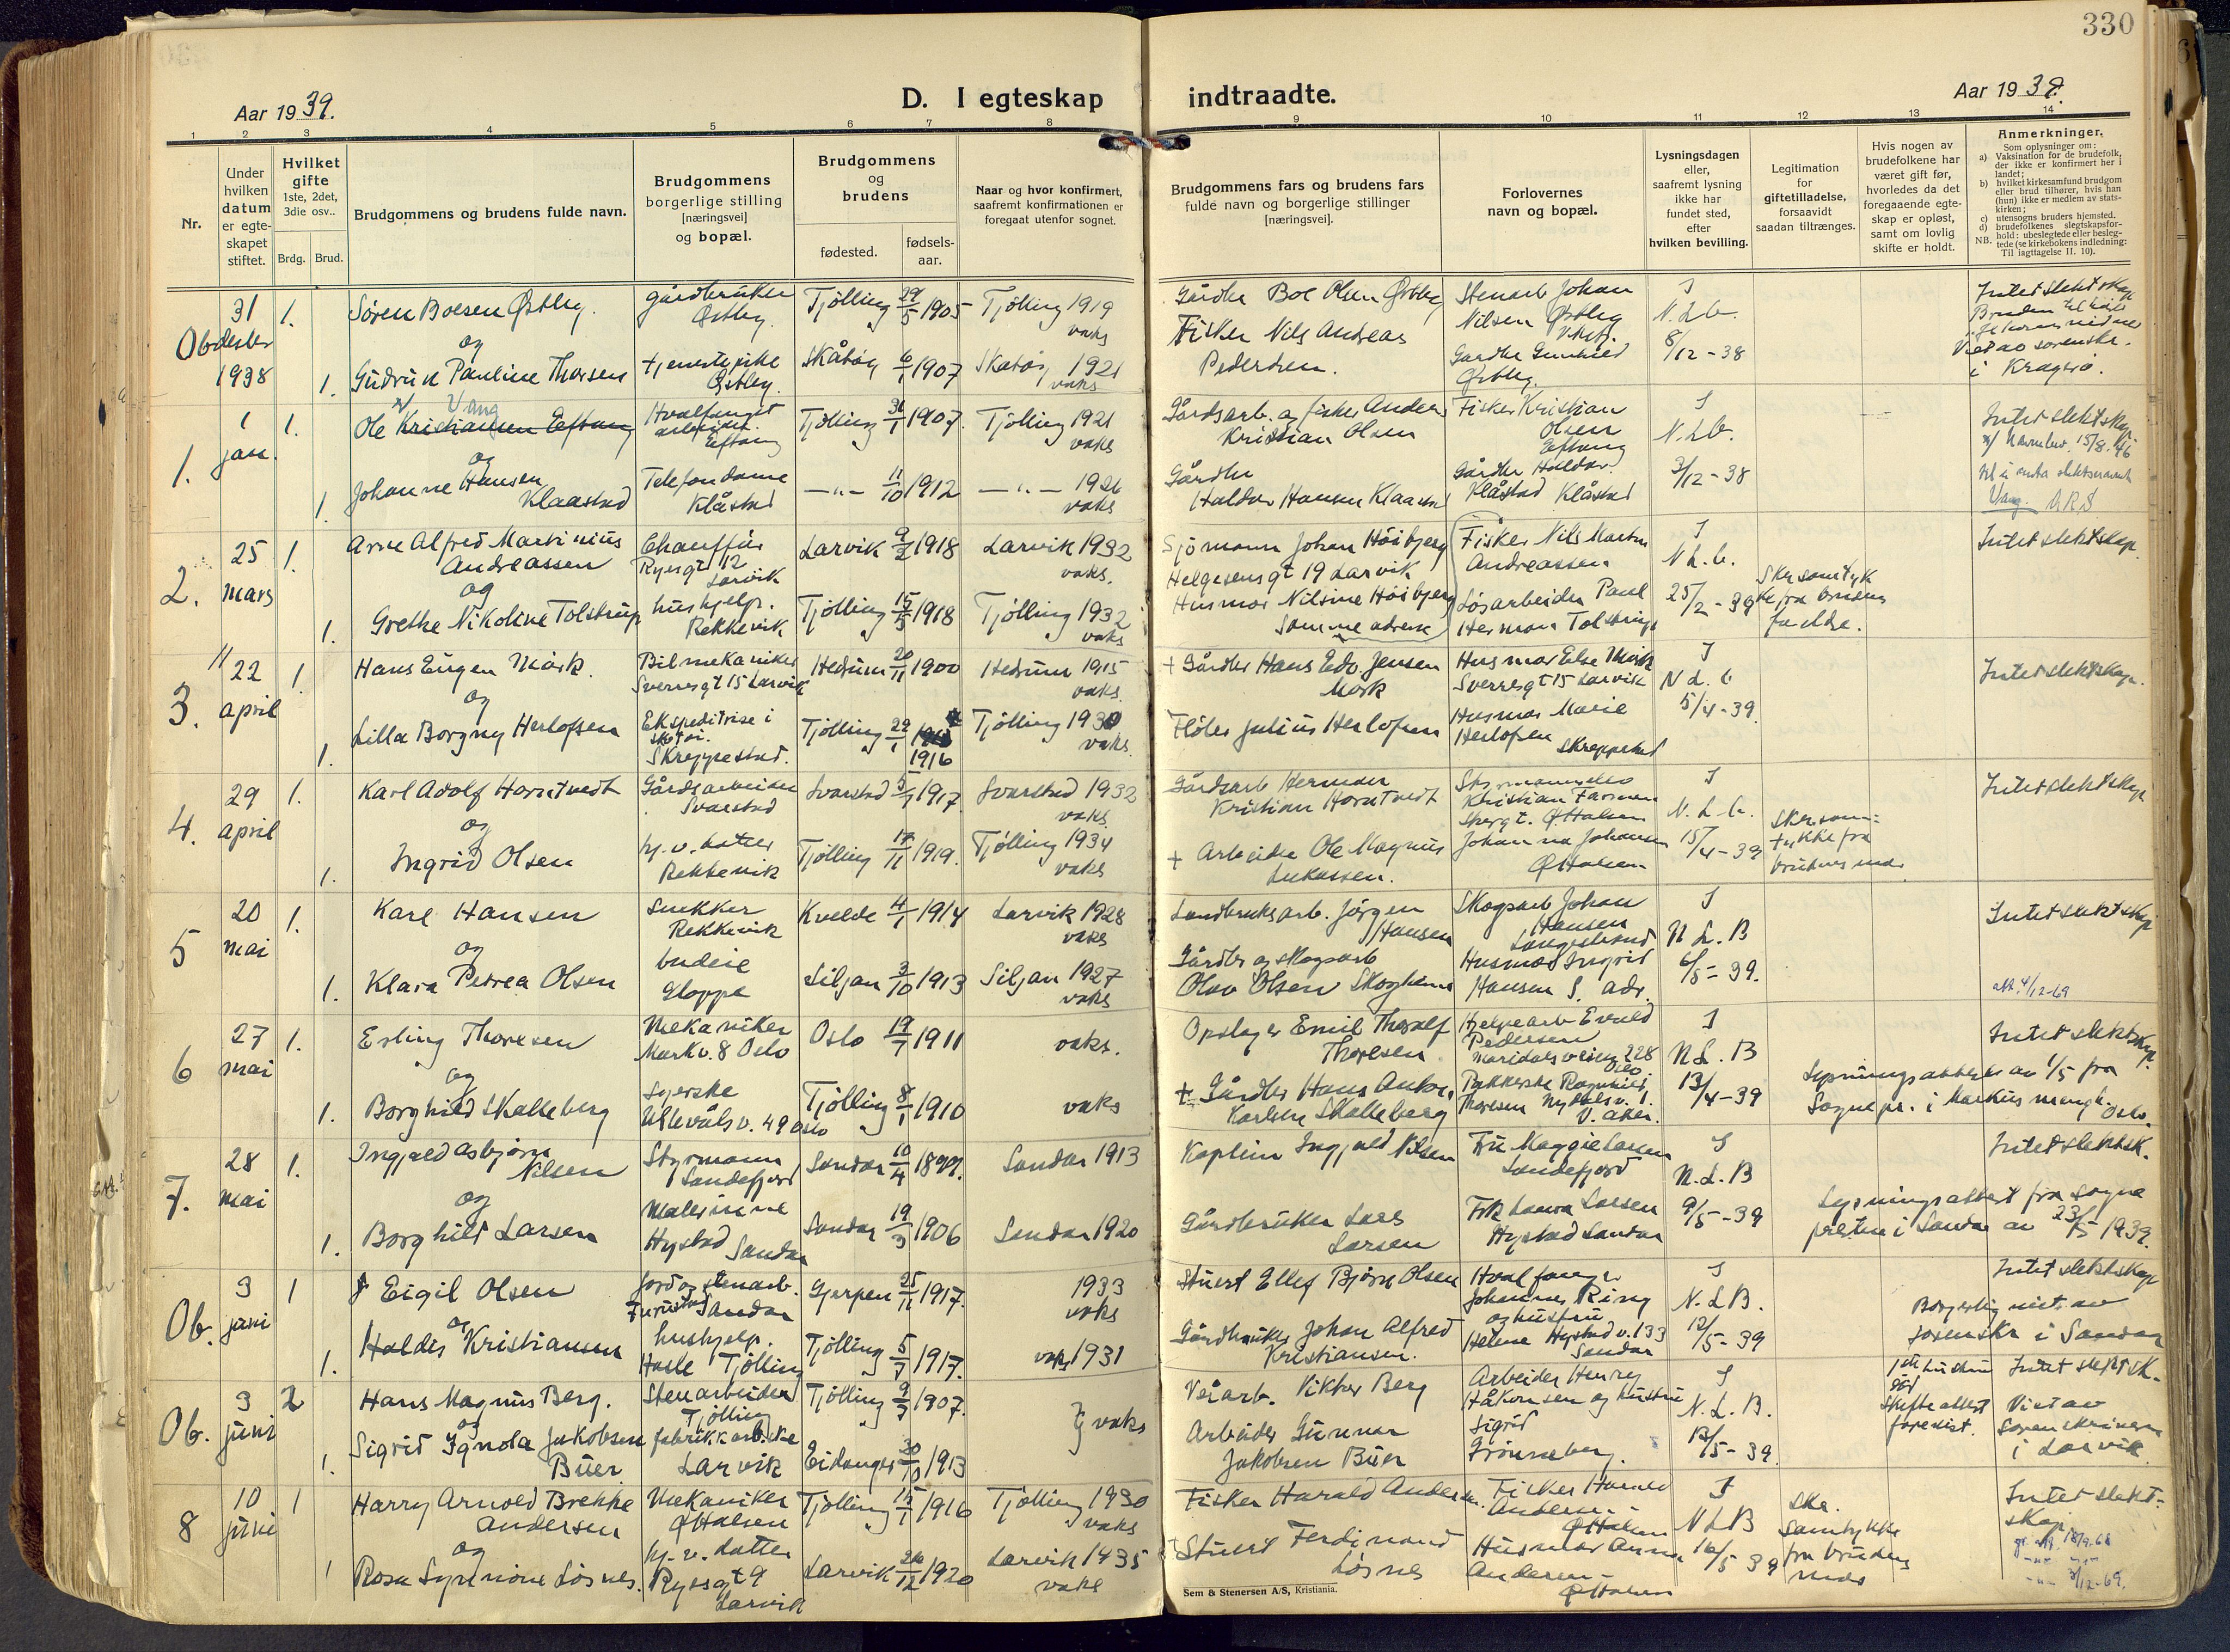 330
Aar 1939.
D. I egteskap indtraadte.
Aar 1939.
1 2 3 4 5 6 7 8 9 10 11 12 13 14
Nr.
Under
hvilken
datum
er egte-
skapet
stiftet.
Hvilket
gifte
1ste, 2det,
3die osv..
Brdg. Brud.
Brudgommens og brudens fulde navn.
Brudgommens
borgerlige stilling
[næringsvei]
og bopæl.
Brudgommens
og
brudens
fødested.
fødsels-
aar.
Naar og hvor konfirmert,
saafremt konfirmationen er
foregaat utenfor sognet.
Brudgommens fars og brudens fars
fulde navn og borgerlige stillinger
[næringsvei].
Forlovernes
navn og bopæl.
Lysningsdagen
eller,
saafremt lysning
ikke har
fundet sted,
efter
hvilken bevilling.
Legitimation
for
giftetilladelse,
forsaavidt
saadan tiltrænges.
Hvis nogen av
brudefolkene har
været gift før,
hvorledes da det
foregaaende egte-
skap er opløst,
samt om lovlig
skifte er holdt.
Anmerkninger.
Som oplysninger om:
a) Vaksination for de brudefolk,
der ikke er konfirmert her i
landet;
b) hvilket kirkesamfund brudgom
eller brud tilhører, hvis han
(hun) ikke er medlem av stats-
kirken;
c) utensogns bruders hjemsted.
d) brudefolkenes slegtskapsfor-
hold: ubeslegtede eller besleg-
NB. tede (se kirkebokens indledning:
Til iagttagelse II. 10).
Ob 31 desbr 1938
1. Søren Boesen Østby.
gårdbruker
Østby.
Tjølling 29/5 1905
Tjølling 1919
vaks
Gårdbr Boe Olsen Østby
Stenarb Johan
Nilsen Østby
og
1. Gudrun Pauline Thorsen
tjenestepike
Østby.
Skåtøy 6/1 1907
Skåtøy 1921
vaks
Fisker Nils Andreas
Pedersen.
Gårdbr Gunhild
Østby.
N. L b.
8/12-38
Intet slektskap
Bruden
Viet av sorenskr.
i Kragerø.
1. 1 jan.
1. Ole Kristiansen Eftang
x/ Vang
Hvalfangst
arbeider.
Eftang
Tjølling 31/1 1907.
Tjølling 1921
vaks
Gårdsarb. og fisker Anders
Kristian Olsen
Fisker Kristian
Olsen
Eftang
og
1. Johanne Hansen
Klaastad
Telefondame
Klåstad
—"— 11/10 1912
—"— 1926
vaks
Gårdbr
Haldor Hansen Klaastad
Gårdbr Haldor
Klåstad Klåstad
N. L b.
3/12-38
Intet slektskap.
x/ Navnebev. 15/8.46
til å anta slektsnavnet
Vang.
2. 25 mars
1. Arne Alfred Martinius
Andreassen
Chauffør
Ryesgt 12
Larvik
Larvik 9/2 1918
Larvik 1932
vaks.
Sjømann Johan Høibjerg
Helgesensgt 19 Larvik
Husmor Nilsine Høibjerg
Samme adresse
Fisker Nils Martin
Andreassen
og
1. Grethe Nikoline Tolstrup
hushjelp.
Rekkevik
Tjølling 15/5 1918
Tjølling 1932
vaks
Løsarbeider Paul
Herman Tolstrup
N L. b.
25/2-39
Skr samtyk
ke fra brudens
foreldre.
Intet slektskap
3. 22 april
1. Hans Eugen Mørk.
Bilmekaniker
Sverresgt 15 Larvik
Hedrum 20/11 1900
Hedrum 1915
vaks
+ Gårdbr Hans Edv. Jensen
Mørk
Husmor Else Mørk
Sverresgt 15 Larvik
og
1. Lilla Borgny Herlofsen
Ekspeditrise i
skotøi.
Skreppestad.
Tjølling 22/1 1916
Tjølling 1930
vaks.
Fløter Julius Herlofsen
Husmor Marie
Herlofsen
Skreppestad
N L. b
5/4-39.
Intet slektskap.
4. 29 april
1. Karl Adolf Horntvedt
Gårdsarbeider
Svarstad
Svarstad 5/7 1917.
Svarstad 1932
vaks
Gårdsarb Herman
Kristian Horntvedt
Kristian Farmen
Ø Halsen
og
1. Ingrid Olsen
hj. v. datter
Rekkevik
Tjølling 17/11 1919.
Tjølling 1934
vaks
+ Arbeider Ole Magnus
Lukassen.
Johanna Johansen
Ø Halsen
N. L b.
15/4-39
Skr. sam-
tykke fra
brudens mor
Intet slektskap
5 20 mai
1. Karl Hansen
Snekker
Rekkevik
Kvelde 4/1 1914
Larvik 1928
vaks
Landbruksarb. Jørgen
Hansen
Skogsarb Johan
Hansen
Langestrand
og
1. Klara Petrea Olsen
budeie
Gloppe
Siljan 3/10 1913
Siljan 1927
vaks
Gårdbr og skogsarb
Olav Olsen Skogheim
Husmor Ingrid
Hansen S. adr.
N L. B
6/5-39.
Intet slektskap
att. 4/12-69
6 27 mai
1. Erling Thoresen
Mekaniker
Markv. 8 Oslo
Oslo 19/7 1911
vaks.
Opslager Emil Thoralf
Thoresen
Hjelpearb Evald
Pedersen
Maridalsveien 228
Oslo.
og
1. Borghild Skalleberg
Syerske
Ullevålsv. 49 Oslo
Tjølling 8/1 1910
vaks
+ Gårdbr Hans Anton
Karlsen Skalleberg
Pakkerske Ragnhild
Thoresen Nydalsv. 1.
V. Aker.
N L. B
13/4-39
Intet slektskap.
Lysningsattest av 1/5 fra
Sognepr. i Markus menigh. Oslo.
7. 28 mai
1. Ingjald Asbjørn
Nilsen
Styrmann
Sandefjord
Sandar 10/4 1899.
Sandar 1913
Kaptein Ingjald Nilsen
Fru Maggie Larsen
Sandefjord
og
1. Borghild Larsen
Malerinne
Hystad Sandar
Sandar 19/3 1906
Sandar 1920
Gårdbruker Lars
Larsen
Frk Laura Larsen
Hystad Sandar
N. L. B
9/5-39
Intet slektsk.
Lysningsattest fra sogne
presten i Sandar av 23/5 1939.
Ob. 3 juni
1 Eigil Olsen
Jord og stenarb.
Furustad Sandar
Gjerpen 25/11 1917.
1933
vaks
Stuert Ellef Bjørn Olsen
Hvalfanger
Johannes Ring
og hustru
og
1. Haldis Kristiansen
hushjelp.
Hasle Tjølling
Tjølling 5/7 1917.
vaks 1931
Gårdbruker Johan Alfred
Kristiansen.
Helene Hystad v. 133
Sandar
N. L B.
12/5-39
Intet slektskap
Borgerlig viet av
sorenskr i Sandar
Ob. 3 juni
2 Hans Magnus Berg.
Stenarbeider
Tjølling
Tjølling 9/7 1907.
vaks
Veiarb. Viktor Berg
Arbeider Henry
Håkonsen og hustru
Sigrid
Grønneberg.
og
1. Sigrid Ignola Jakobsen
Buer
fabrikkarb.ske
Larvik
Eidanger 30/10 1913
Arbeider Gunnar
Jakobsen Buer
N. L. B.
13/5-39.
1ste hustru
død
Skifteattest
forevist.
Intet slektsk.
Viet av
Sorenskriveren
i Larvik
8 10 juni
1 Harry Arnold Brekke
Andersen
Mekaniker
Ø Halsen
Tjølling 15/1 1916
Tjølling 1930
vaks
Fisker Harald Andersen.
Fisker Harald
Andersen
Ø Halsen
og
1 Rosa Synnøve Løsnes.
hj. v. datter
Ryesgt 9
Larvik
Larvik 26/12 1920
Larvik 1935
vaks
Stuert Ferdinand
Løsnes
Husmor Anna
Andersen
Ø Halsen
N L B
16/5 39
Skr.
samtykke
fra brudens
mor
Intet slekt-
skap
Sem & Stenersen A/S, Kristiania.